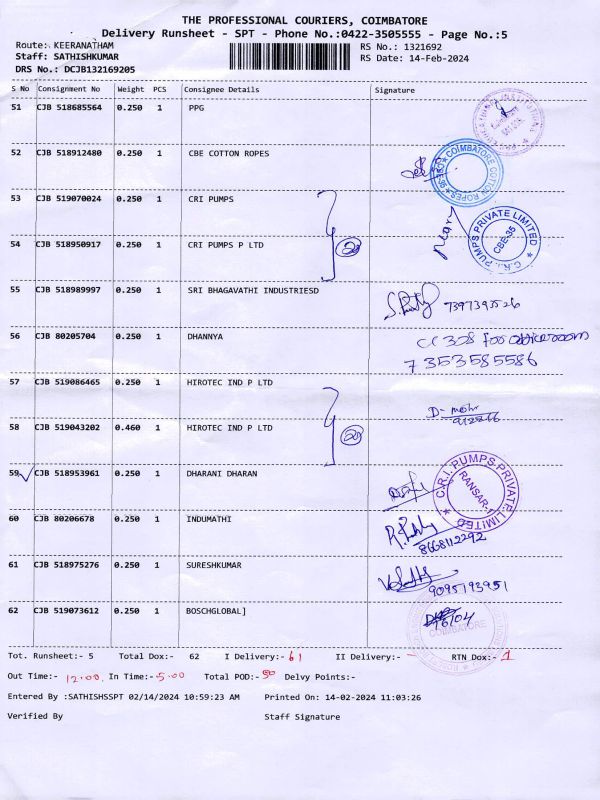 THE PROFESSIONAL COURIERS, COIMBATORE
Delivery Runsheet - SPT - Phone No.:0422-3505555 - Page No.:5
Route: KEERANATHAM
RS No.: 1321692
Staff: SATHISHKUMAR
RS Date: 14-Feb-2024
DRS No.: DCJB132169205
S No Consignment No Weight PCS Consignee Details Signature
51 CJB 518685564 0.250 1 PPG
52 CJB 518912480 0.250 1 CBE COTTON ROPES
COIMBATORE COTTON ROPES
53 CJB 519070024 0.250 1 CRI PUMPS
54 CJB 518950917 0.250 1 CRI PUMPS P LTD
C.R.I. PUMPS PRIVATE LIMITED
CBE-35
55 CJB 518989997 0.250 1 SRI BHAGAVATHI INDUSTRIESD
7397393526
56 CJB 80205704 0.250 1 DHANNYA
CC 308 for office room
7353585586
57 CJB 519086465 0.250 1 HIROTEC IND P LTD
58 CJB 519043202 0.460 1 HIROTEC IND P LTD
59 CJB 518953961 0.250 1 DHARANI DHARAN
C.R.I. PUMPS PRIVATE LIMITED
60 CJB 80206678 0.250 1 INDUMATHI
8668112292
61 CJB 518975276 0.250 1 SURESHKUMAR
9095193951
62 CJB 519073612 0.250 1 BOSCHGLOBAL]
COIMBATORE
Tot. Runsheet:- 5 Total Dox:- 62 I Delivery:- 61 II Delivery:- - RTN Dox:- 1
Out Time:- 12.00 In Time:- 5.00 Total POD:- 50 Delvy Points:-
Entered By :SATHISHSSPT 02/14/2024 10:59:23 AM Printed On: 14-02-2024 11:03:26
Verified By Staff Signature